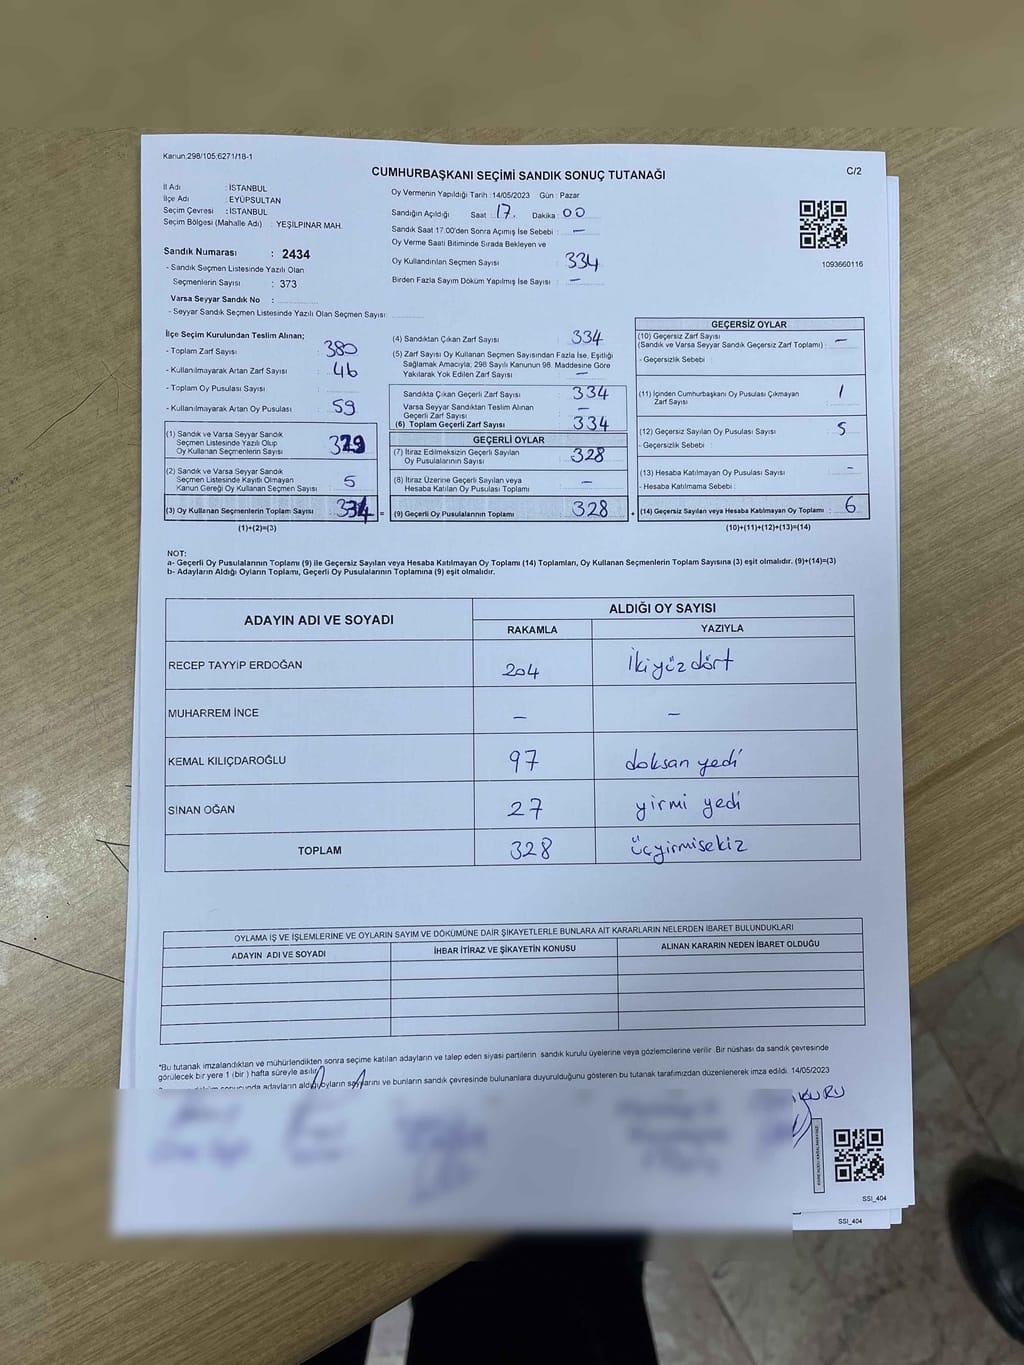 Kanun:298/105,6271/18-1
CUMHURBAŞKANI SEÇİMİ SANDIK SONUÇ TUTANAĞI
C/2
İl Adı : İSTANBUL
İlçe Adı : EYÜPSULTAN
Seçim Çevresi : İSTANBUL
Seçim Bölgesi (Mahalle Adı) : YEŞİLPINAR MAH.
Sandık Numarası : 2434
- Sandık Seçmen Listesinde Yazılı Olan
Seçmenlerin Sayısı : 373
Varsa Seyyar Sandık No :
- Seyyar Sandık Seçmen Listesinde Yazılı Olan Seçmen Sayısı:
Oy Vermenin Yapıldığı Tarih : 14/05/2023 Gün : Pazar
Sandığın Açıldığı Saat 17. Dakika : 00
Sandık Saat 17:00'den Sonra Açımış İse Sebebi : —
Oy Verme Saati Bitiminde Sırada Bekleyen ve
Oy Kullandırılan Seçmen Sayısı 334
Birden Fazla Sayım Döküm Yapılmış İse Sayısı : —
1093660116
İlçe Seçim Kurulundan Teslim Alınan;
- Toplam Zarf Sayısı : 380
- Kullanılmayarak Artan Zarf Sayısı : 46
- Toplam Oy Pusulası Sayısı :
- Kullanılmayarak Artan Oy Pusulası : 59
(1) Sandık ve Varsa Seyyar Sandık
Seçmen Listesinde Yazılı Olup
Oy Kullanan Seçmenlerin Sayısı : 329
(2) Sandık ve Varsa Seyyar Sandık
Seçmen Listesinde Kayıtlı Olmayan
Kanun Gereği Oy Kullanan Seçmen Sayısı : 5
(3) Oy Kullanan Seçmenlerin Toplam Sayısı : 334 =
(1)+(2)=(3)
(4) Sandıktan Çıkan Zarf Sayısı : 334
(5) Zarf Sayısı Oy Kullanan Seçmen Sayısından Fazla İse, Eşitliği
Sağlamak Amacıyla; 298 Sayılı Kanunun 98. Maddesine Göre
Yakılarak Yok Edilen Zarf Sayısı : —
Sandıkta Çıkan Geçerli Zarf Sayısı : 334
Varsa Seyyar Sandıktan Teslim Alınan
Geçerli Zarf Sayısı : —
(6) Toplam Geçerli Zarf Sayısı : 334
GEÇERLİ OYLAR
(7) İtiraz Edilmeksizin Geçerli Sayılan
Oy Pusulalarının Sayısı : 328
(8) İtiraz Üzerine Geçerli Sayılan veya
Hesaba Katılan Oy Pusulası Toplamı : —
(9) Geçerli Oy Pusulalarının Toplamı : 328 +
GEÇERSİZ OYLAR
(10) Geçersiz Zarf Sayısı
(Sandık ve Varsa Seyyar Sandık Geçersiz Zarf Toplamı) : —
- Geçersizlik Sebebi :
(11) İçinden Cumhurbaşkanı Oy Pusulası Çıkmayan
Zarf Sayısı : 1
(12) Geçersiz Sayılan Oy Pusulası Sayısı : 5
- Geçersizlik Sebebi :
(13) Hesaba Katılmayan Oy Pusulası Sayısı : -
- Hesaba Katılmama Sebebi :
(14) Geçersiz Sayılan veya Hesaba Katılmayan Oy Toplamı : 6
(10)+(11)+(12)+(13)=(14)
NOT:
a- Geçerli Oy Pusulalarının Toplamı (9) ile Geçersiz Sayılan veya Hesaba Katılmayan Oy Toplamı (14) Toplamları, Oy Kullanan Seçmenlerin Toplam Sayısına (3) eşit olmalıdır. (9)+(14)=(3)
b- Adayların Aldığı Oyların Toplamı, Geçerli Oy Pusulalarının Toplamına (9) eşit olmalıdır.
ADAYIN ADI VE SOYADI
ALDIĞI OY SAYISI
RAKAMLA YAZIYLA
RECEP TAYYİP ERDOĞAN 204 İkiyüz dört
MUHARREM İNCE — —
KEMAL KILIÇDAROĞLU 97 doksan yedi
SİNAN OĞAN 27 yirmi yedi
TOPLAM 328 üçyirmisekiz
OYLAMA İŞ VE İŞLEMLERİNE VE OYLARIN SAYIM VE DÖKÜMÜNE DAİR ŞİKAYETLERLE BUNLARA AİT KARARLARIN NELERDEN İBARET BULUNDUKLARI
ADAYIN ADI VE SOYADI İHBAR İTİRAZ VE ŞİKAYETİN KONUSU ALINAN KARARIN NEDEN İBARET OLDUĞU
*Bu tutanak imzalandıktan ve mühürlendikten sonra seçime katılan adayların ve talep eden siyasi partilerin sandık kurulu üyelerine veya gözlemcilerine verilir Bir nüshası da sandık çevresinde
görülecek bir yere 1 (bir) hafta süreyle asılır.
sonucunda adayların aldığı oyların sayılarını ve bunların sandık çevresinde bulunanlara duyurulduğunu gösteren bu tutanak tarafımızdan düzenlenerek imza edildi. 14/05/2023
KURU
SSI_404
SSI_404